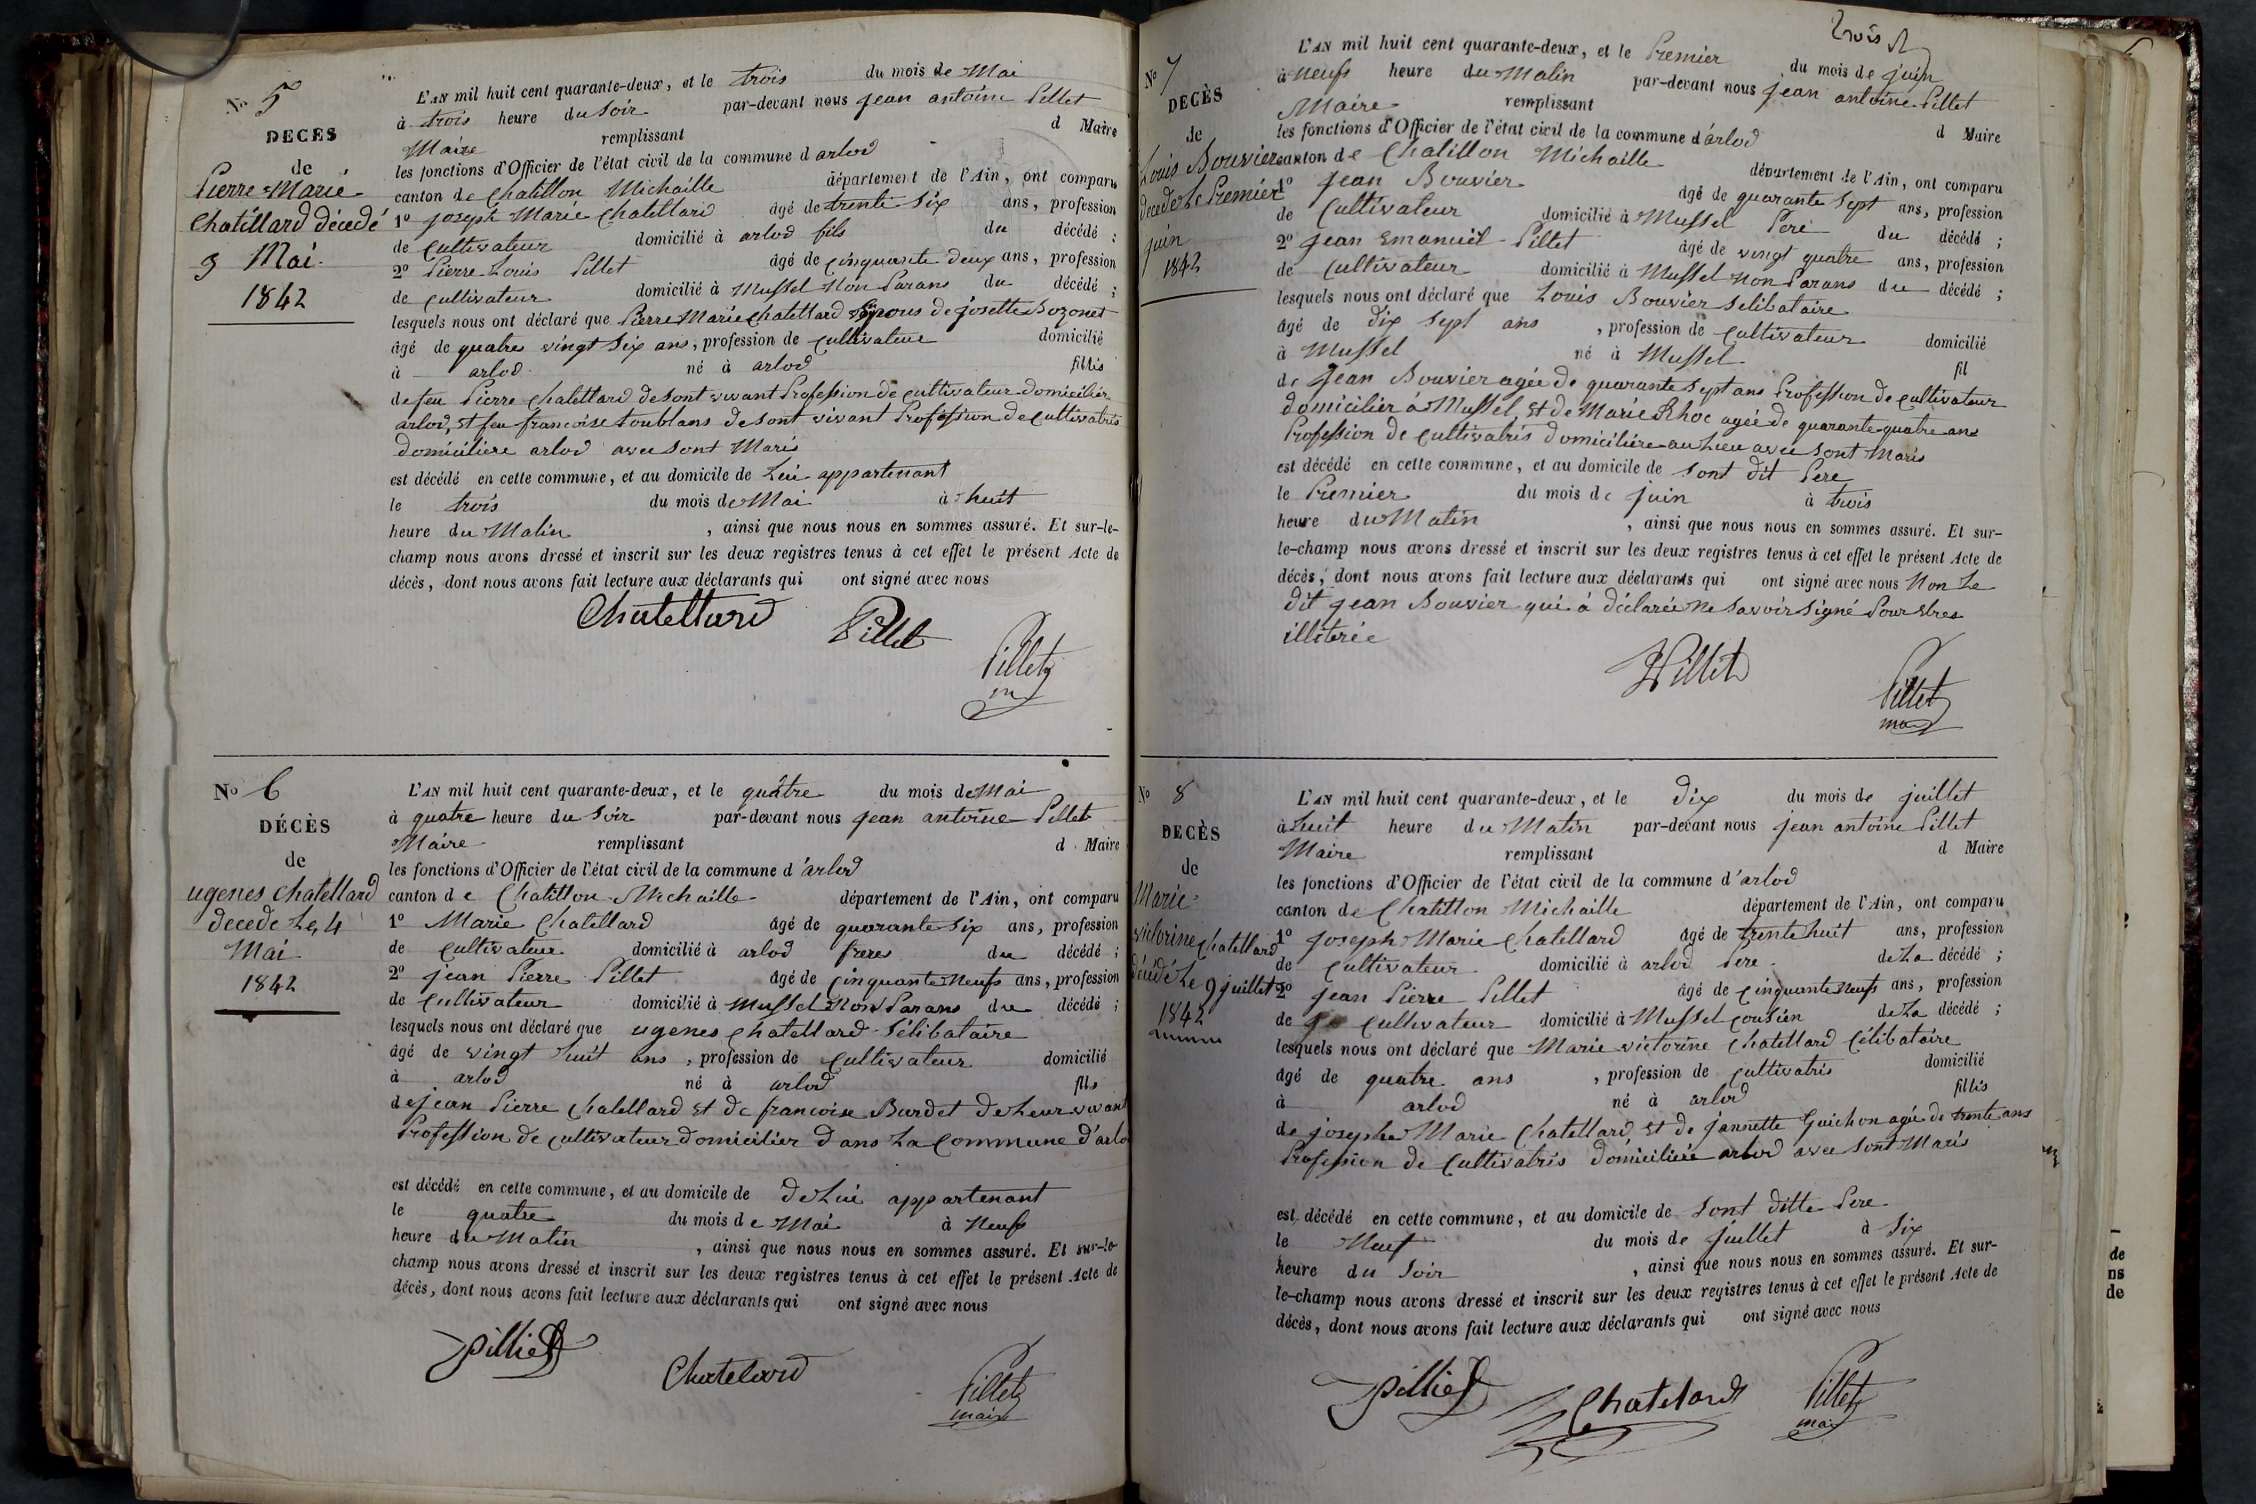 No 5
DECES
de
Pierre-Marie
Chatéllard décedé
3 Mai
1842
L'AN mil huit cent quarante-deux, et le trois du mois de Mai
à trois heure du Soir par-devant nous jean antoine Pillet
Maire remplissant d Maire
les fonctions d'Officier de l'état civil de la commune d arlod
canton de Chatillon Michaille département de l'Ain, ont comparu
1° joseph Marie Chatellard âgé de trente Six ans, profession
de Cultivateur domicilié à arlod fils du décédé ;
2° Pierre Louis Pillet âgé de Cinquante deux ans, profession
de Cultivateur domicilié à Mussel Non Parans du décédé ;
lesquels nous ont déclaré que Pierre Marie Chatellard Epous de josette Bozonet
âgé de quatres vingt Six ans, profession de Cultivateur domicilié
à arlod né à arlod fillis
de feu Pierre Chatellard de sont vivant Profession de Cultivateur domicilier
arlod, Et feu francoise toublans de sont vivant Profession de Cultivatris
Domiciliere arlod avec sont Maris
est décédé en cette commune, et au domicile de Lui appartenant
le trois du mois de Mai à huit
heure du Matin, ainsi que nous nous en sommes assuré. Et sur-le-
champ nous avons dressé et inscrit sur les deux registres tenus à cet effet le présent Acte de
décès, dont nous avons fait lecture aux déclarants qui ont signé avec nous
Chatellard Pillet
Pillet
No 6
DÉCÈS
de
ugenes Chatellard
decede Le 4
Mai
1842
L'AN mil huit cent quarante-deux, et le quâtre du mois de Mai
à quatre heure du Soir par-devant nous jean antoine Pillet
Maire remplissant d Maire
les fonctions d'Officier de l'état civil de la commune d'arlod
canton de Chatillon Michaille département de l'Ain, ont comparu
1° Marie Chatellard âgé de quarante Six ans, profession
de Cultivateur domicilié à arlod freres du décédé ;
2° jean Pierre Pillet âgé de Cinquante Neufs ans, profession
de Cultivateur domicilié à Mussel Non Parans du décédé ;
lesquels nous ont déclaré que ugenes Chatellard Sélibataire
âgé de vingt huit ans, profession de Cultivateur domicilié
à arlod né à arlod fils
de jean Pierre Chatellard Et de francoise Burdet de Leur vivant
Profession de Cultivateur Domicilier dans La Commune d'arlo
est décédé en cette commune, et au domicile de de Lui appartenant
le quatre du mois de Mai à Neufs
heure du Matin, ainsi que nous nous en sommes assuré. Et sur-le-
champ nous avons dressé et inscrit sur les deux registres tenus à cet effet le présent Acte de
décès, dont nous avons fait lecture aux déclarants qui ont signé avec nous
Pilliet
Chatelard
Pillet
maire
trois
No 7
DECÈS
de
Louis Bouvier
décedé Le Premier
juin
1842
L'AN mil huit cent quarante-deux, et le Premier du mois de juin
à Neufs heure du Matin par-devant nous jean antoine Pillet
Maire remplissant d Maire
les fonctions d'Officier de l'état civil de la commune d'arlod
canton de Chatillon Michaille département de l'Ain, ont comparu
1° jean Bouvier âgé de quarante Sept ans, profession
de Cultivateur domicilié à Mussel Peré du décédé ;
2° jean Emanuel Pillet âgé de vingt quatre ans, profession
de Cultivateur domicilié à Mussel Non Parans du décédé ;
lesquels nous ont déclaré que Louis Bouvier Selibataire
âgé de dix sept ans, profession de Cultivateur domicilié
à Mussel né à Mussel fil
de Jean Bouvier agée de quarante Sept ans Profession de Cultivateur
domicilier à Mussel, Et de Marie Rhoc agée de quarante quatre ans
Profession de Cultivatris Domiciliére au Lieu avec sont Maris
est décédé en cette commune, et au domicile de Sont dit Pere
le Premier du mois de juin à trois
heure du Matin, ainsi que nous nous en sommes assuré. Et sur-
le-champ nous avons dressé et inscrit sur les deux registres tenus à cet effet le présent Acte de
décès, dont nous avons fait lecture aux déclarants qui ont signé avec nous Non Le
dit jean Bouvier qui à déclarée Ne Savoir Signé Pour Etres
illiterée
Pillet
Pillet
No 8
DECÈS
de
Marie-
victorine Chatellard
décédé Le 9 juillet
1842
L'AN mil huit cent quarante-deux, et le dix du mois de juillet
à huit heure du Matin par-devant nous jean antoine Pillet
Maire remplissant d Maire
les fonctions d'Officier de l'état civil de la commune d'arlod
canton de Chatillon Michaille département de l'Ain, ont comparu
1° joseph Marie Chatellard âgé de trente huit ans, profession
de Cultivateur domicilié à arlod Pere de La décédé ;
2° jean Pierre Pillet âgé de Cinquante Neufs ans, profession
de Cultivateur domicilié à Mussel Cousien de La décédé ;
lesquels nous ont déclaré que Marie victorine Chatellard Célibataire
âgé de quatre ans, profession de Cultivatris domicilié
à arlod né à arlod fillis
de josephe Marie Chatellard Et de jannette Guichon agée de trente ans
Profession de Cultivatris domiciliée arlod avec Sont Maris
est décédé en cette commune, et au domicile de Sont ditte Pere
le Neuf du mois de juillet à Six
heure du Soir, ainsi que nous nous en sommes assuré. Et sur-
le-champ nous avons dressé et inscrit sur les deux registres tenus à cet effet le présent Acte de
décès, dont nous avons fait lecture aux déclarants qui ont signé avec nous
Pilliet
Chatelard
Pillet
de
ns
de